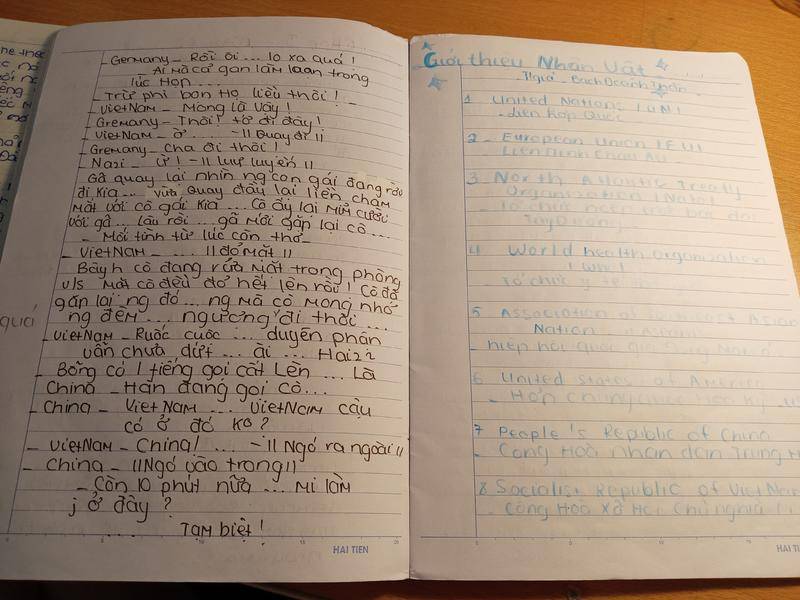 Germany - Rồi ôi ... lo xa quá!
- Ai mà cả gan làm loạn trong
lúc Họp ...
- Trừ phi bọn Họ liều thôi! -
VietNam - Mong là Vậy!
Gremany - Thôi! tớ đi đây!
VietNam - ờ ... -|| Quay đi ||
Gremany - Cha đi thôi!
Nazi - Ừ! -|| lưu luyến ||
Gã quay lại nhìn ng con gái đang rảo
đi kia ... vừa Quay đầu lại liền chạm
Mắt với cô gái kia ... Cô ấy lại Mỉm cười
với gã ... lâu rồi ... gã Mới gặp lại cô ...
- Mối tình từ lúc còn thơ -
- VietNam - ... || đỏ Mặt ||
Bâyh cô đang rửa Mặt trong phòng
v/s Mặt cô đều đỏ hết lên rồi! Cô đã
gặp lại ng đó ... ng Mà cô Mong nhớ
ng đêm ... ngượng đi thôi ...
- VietNam - Ruốc cuộc ... duyên phận
vẫn chưa dứt ... ài ... Hai22
- Bỗng có 1 tiếng gọi cất Lên ... Là
China - Hắn đang gọi Cô ...
- China - VietNam ... VietNam cậu
có ở đó ko?
- VietNam - China! ... -|| Ngó ra ngoài ||
- China - || Ngó vào trong ||
- Còn 10 phút nữa ... Mi làm
j ở đây?
... Tạm biệt!
HAI TIEN
quá
Giới thiệu Nhân Vật
1 United Nations | UN |
- Liên Hợp Quốc
2 - European Union | EU |
- Liên Minh Châu Âu
3 North Atlantic Treaty
Organization | Nato |
4 World health Organization
| WHO |
- Tổ chức y tế
5 Association of Southeast Asian
Nation
- hiệp hội quốc gia
6 United states of America
- Hợp Chủng Quốc Hoa Kỳ
7 People's Republic of China
- Cộng Hoà Nhân dân Trung H
8 Socialist Republic of VietNam
- Cộng Hoà Xã Hội Chủ nghĩa
HAI TIEN